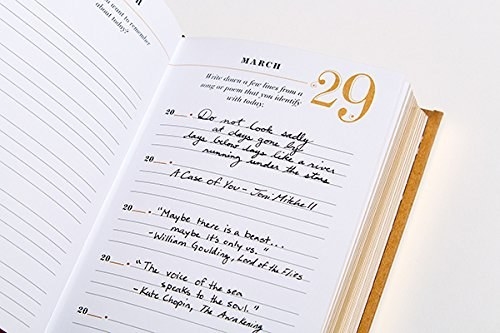 u want to remember
about today?
MARCH
29
Write down a few lines from a
song or poem that you identify
with today:
20__. Do not look sadly
at days gone by
days below days like a river
running under the stars
20__.
A Case of You - Joni Mitchell
20__. "Maybe there is a beast...
maybe it's only us."
-William Goulding, Lord of the Flies
20__. "The voice of the sea
speaks to the soul."
-Kate Chopin, The Awakening
20__.